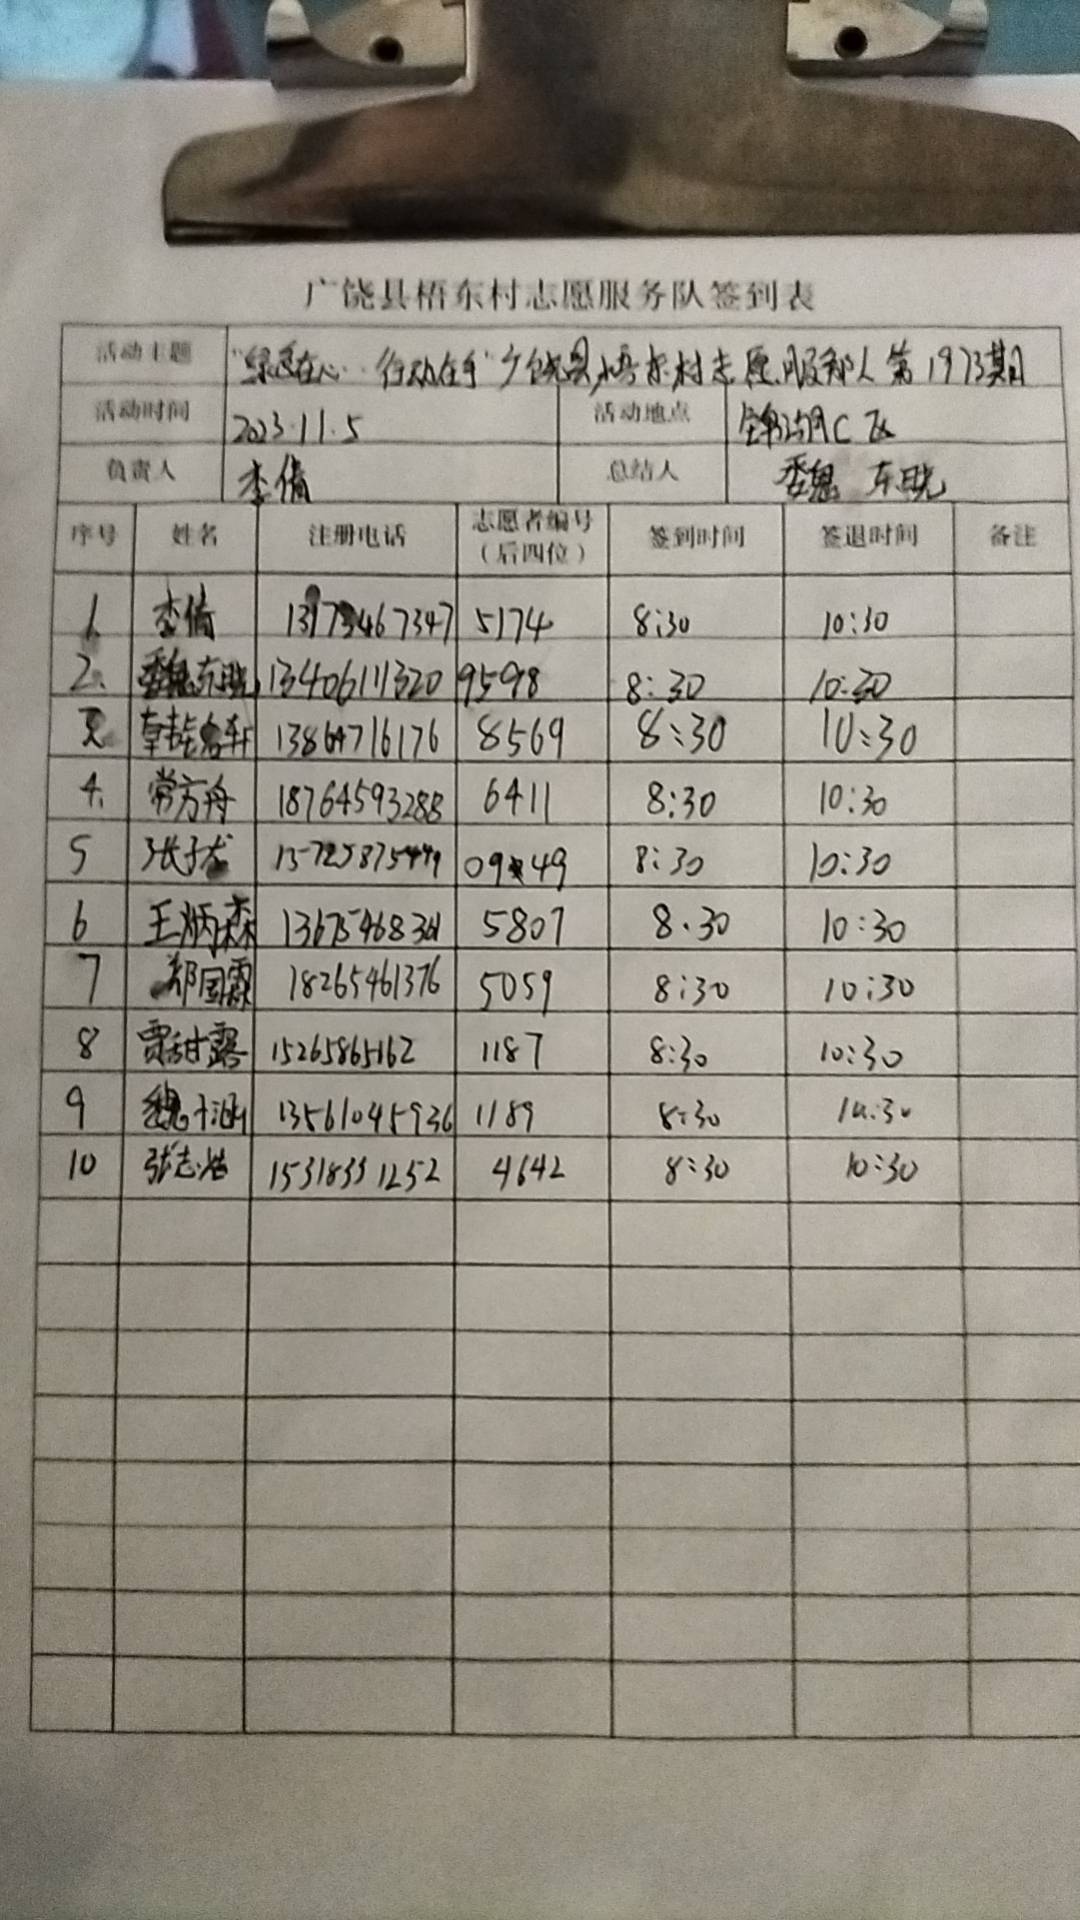 广饶县梧东村志愿服务队签到表
活动主题 "绿色在心 行动在手"广饶县梧东村志愿服务队第1973期
活动时间 2023.11.5 活动地点 锦湖C区
负责人 李倩 总结人 魏东晓
序号 姓名 注册电话 志愿者编号（后四位） 签到时间 签退时间 备注
1. 李倩 5174 8:30 10:30
2. 魏东晓 13406111320 9598 8:30 10:30
3 13864716176 8569 8:30 10:30
4. 常方舟 18764593288 6411 8:30 10:30
5 0949 8:30 10:30
6 王炳森 5807 8.30 10:30
7 郑国霖 18265461376 5059 8:30 10:30
8 贾甜露 15265865162 1187 8:30 10:30
9 13561045936 1189 8:30 10:30
10 张志浩 15318331252 4642 8:30 10:30